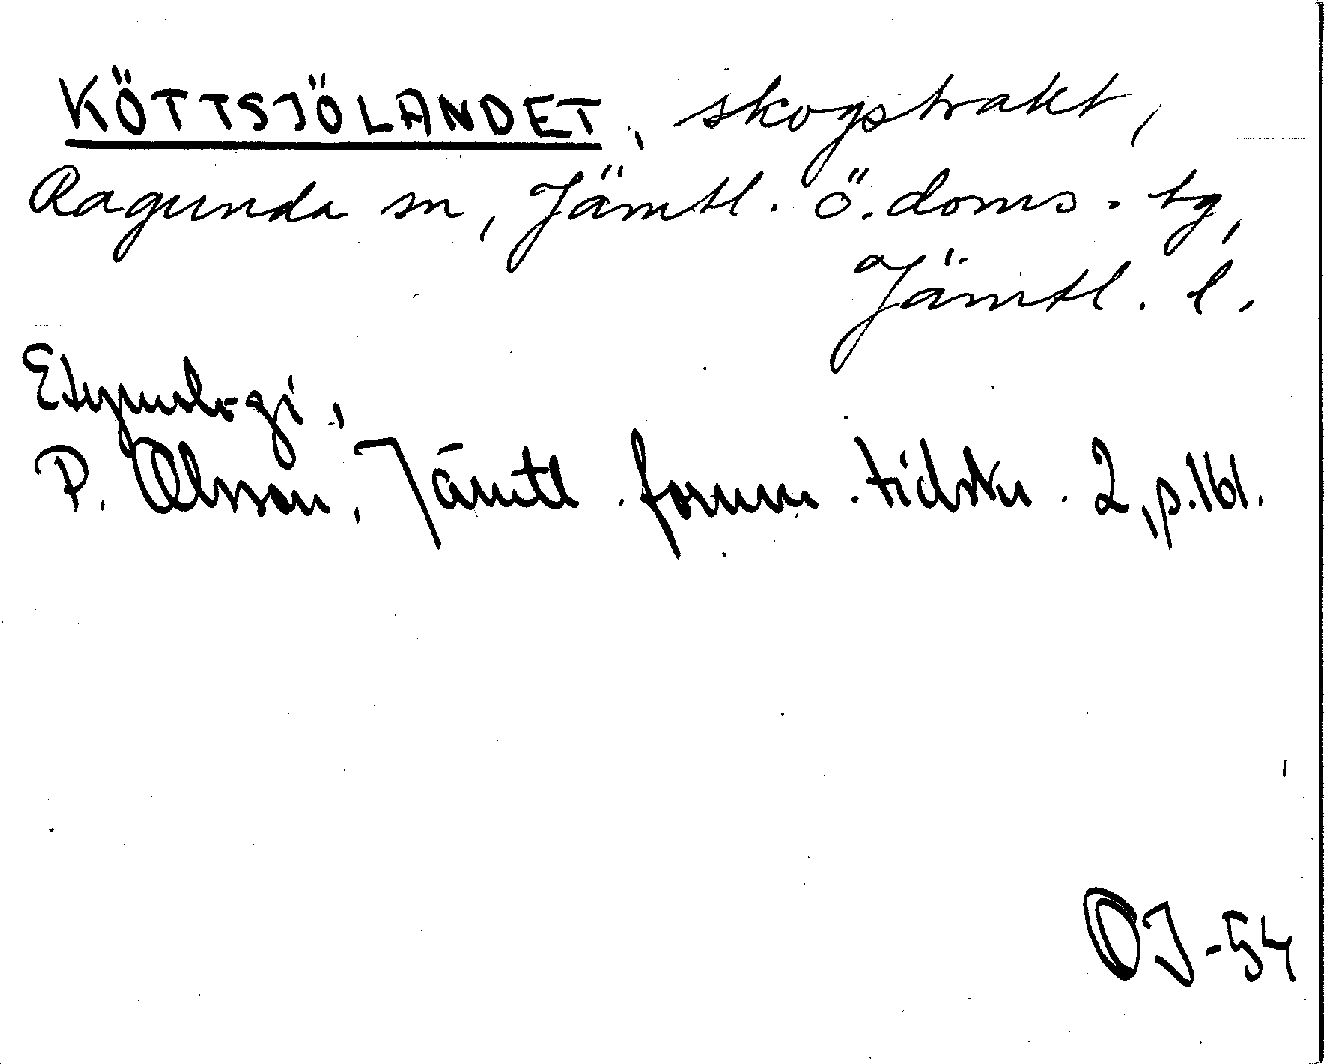 KÖTTSJÖLANDET, skogstrakt,
Ragunda sn, Jämtl. ö. doms. tg,
Jämtl. l.
Etymologi,
P. Olsson, Jämtl. fornm. tidskr. 2, p. 161.
OJ-54